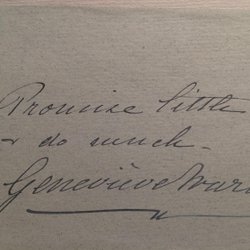 Promise little
& do much.
Geneviève Ward